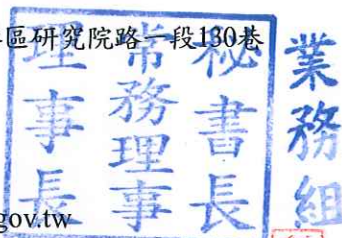 區研究院路一段130巷
秘書長
常務理事
理事長
業務組
gov.tw